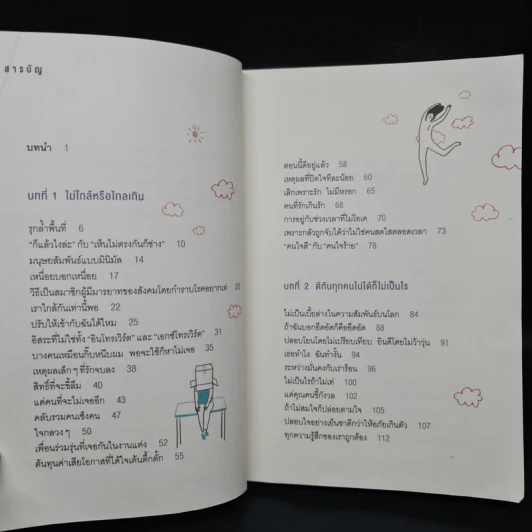 สารบัญ
บทนำ 1
บทที่ 1 ไม่ใกล้หรือไกลเกิน
รุกล้ำพื้นที่ 6
"ก็แล้วไงล่ะ" กับ "เห็นไม่ตรงกันก็ช่าง" 10
มนุษยสัมพันธ์แบบมินิมัล 14
เหนื่อยบอกเหนื่อย 17
วิธีเป็นสมาชิกผู้มีมารยาทของสังคมโดยกำราบโรคอยากเท่ 20
เราใกล้กันเท่านี้พอ 22
ปรับให้เข้ากับฉันได้ไหม 25
อิสระที่ไม่ใช่ทั้ง "อินโทรเวิร์ต" และ "เอกซ์โทรเวิร์ต" 31
บางคนเหมือนกิ๊บหนีบผม พอจะใช้ก็หาไม่เจอ 35
เหตุผลเล็กๆ ที่รักจบลง 38
สิทธิ์ที่จะขี้ลืม 40
แด่คนที่จะไม่เจออีก 43
คลับรวมคนเซ็งคน 47
ใจกลวงๆ 50
เพื่อนร่วมรุ่นที่เจอกันในงานแต่ง 52
ต้นทุนค่าเสียโอกาสที่ได้ใจเต้นตึ้กตั้ก 55
ตอนนี้ดีอยู่แล้ว 58
เหตุผลที่ปิดใจทีละน้อย 60
เลิกเพราะรัก ไม่มีหรอก 65
คนที่รักเกินรัก 68
การอยู่กับช่วงเวลาที่ไม่โอเค 70
เพราะกลัวถูกจับได้ว่าไม่ใช่คนสดใสตลอดเวลา 73
"คนใจดี" กับ "คนใจร้าย" 78
บทที่ 2 ดีกับทุกคนไม่ได้ก็ไม่เป็นไร
ไม่เป็นเบี้ยล่างในความสัมพันธ์บนโลก 84
ถ้าฉันบอกอึดอัดก็คืออึดอัด 88
ปลอบโยนโดยไม่เปรียบเทียบ ยินดีโดยไม่ว้าวุ่น 91
เธอทำไง ฉันทำงั้น 94
ระหว่างมั่นคงกับเร่าร้อน 96
ไม่เป็นไรถ้าไม่เท่ 100
แด่คุณคนขี้กังวล 102
ถ้าไม่สมใจก็ปล่อยตามใจ 105
ปลอบใจอย่างเย็นชาดีกว่าให้อภัยเกินตัว 107
ทุกความรู้สึกของเราถูกต้อง 112